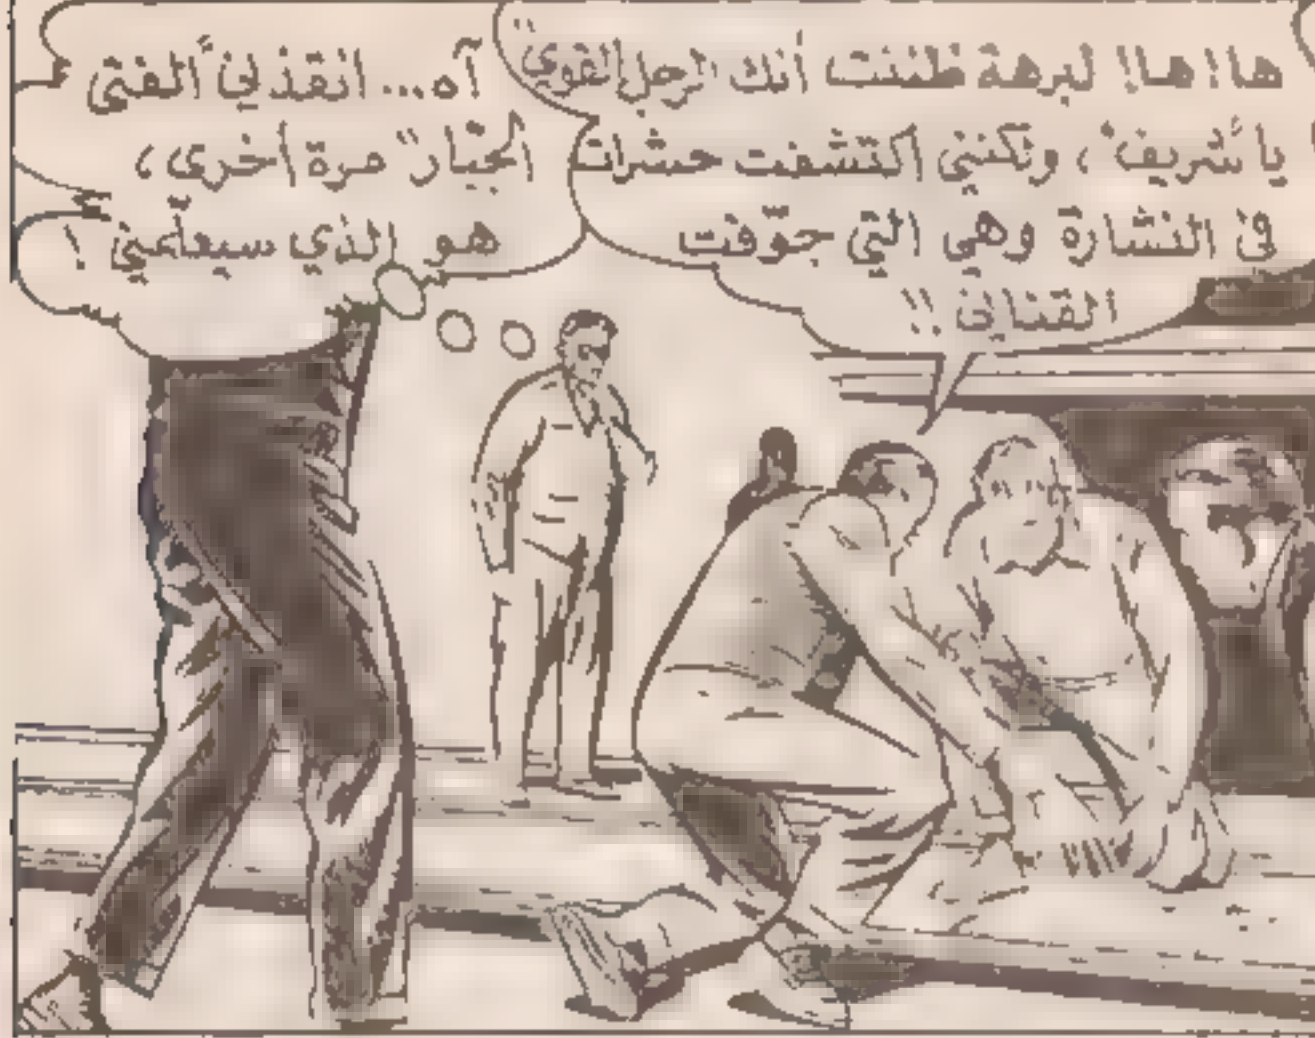 ها! ها! لبرهة ظننت أنك الرجل القوي"
يا "شريف"، ولكنني اكتشفت حشرات
في النشارة وهي التي جوّفت
القناني!!
آه... انقذني "الفتى
الجبّار" مرة أخرى،
هو الذي سيعلّمني!